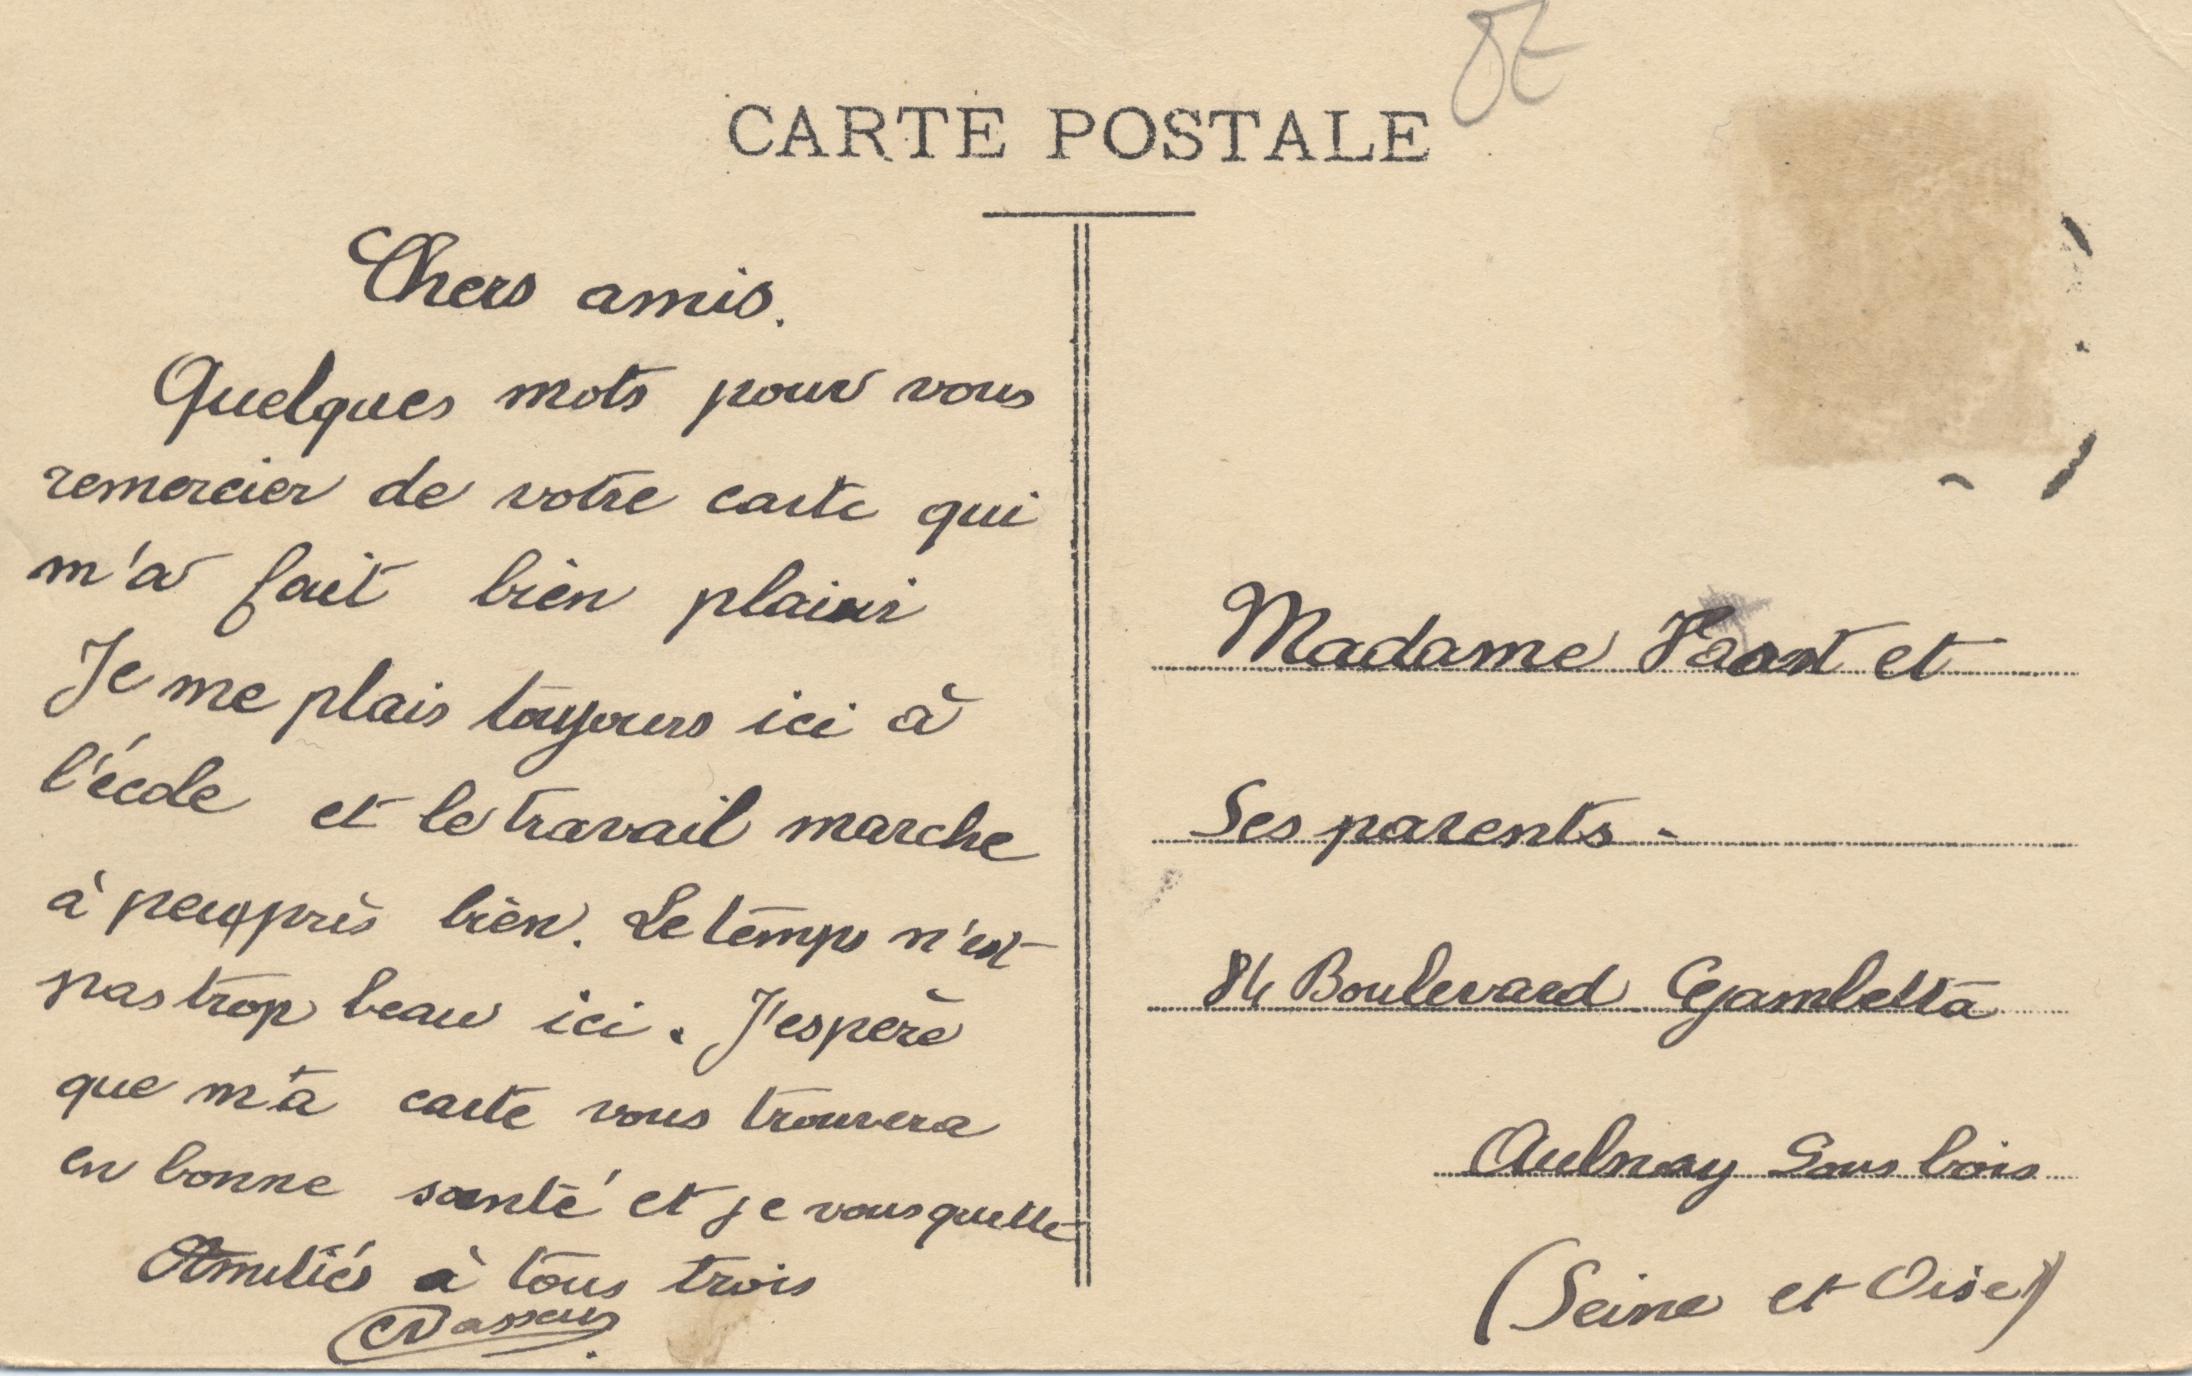 CARTE POSTALE
Chers amis.
Quelques mots pour vous
remercier de votre carte qui
m'a fait bien plaisir
Je me plais toujours ici à
l'école et le travail marche
à peu près bien. Le temps n'est
pas trop beau ici. J'espère
que ma carte vous trouvera
en bonne santé et je vous quitte
Amitiés à tous trois
Madame et
Ses parents -
84 Boulevard Gambetta
Aulnay Sous bois
(Seine et Oise)